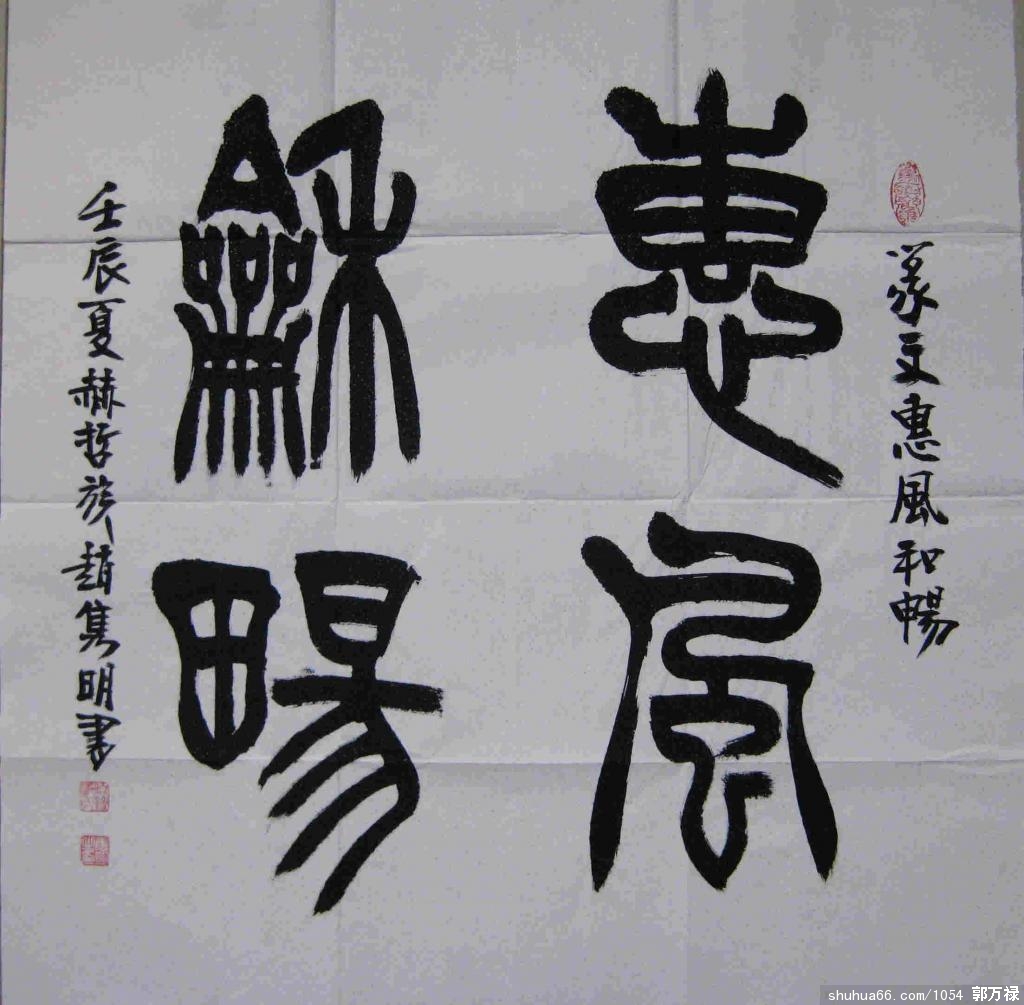 篆文惠風和暢
惠風
龢暘
壬辰夏赫哲族趙雋明書
shuhua66.com/1054 郭万禄